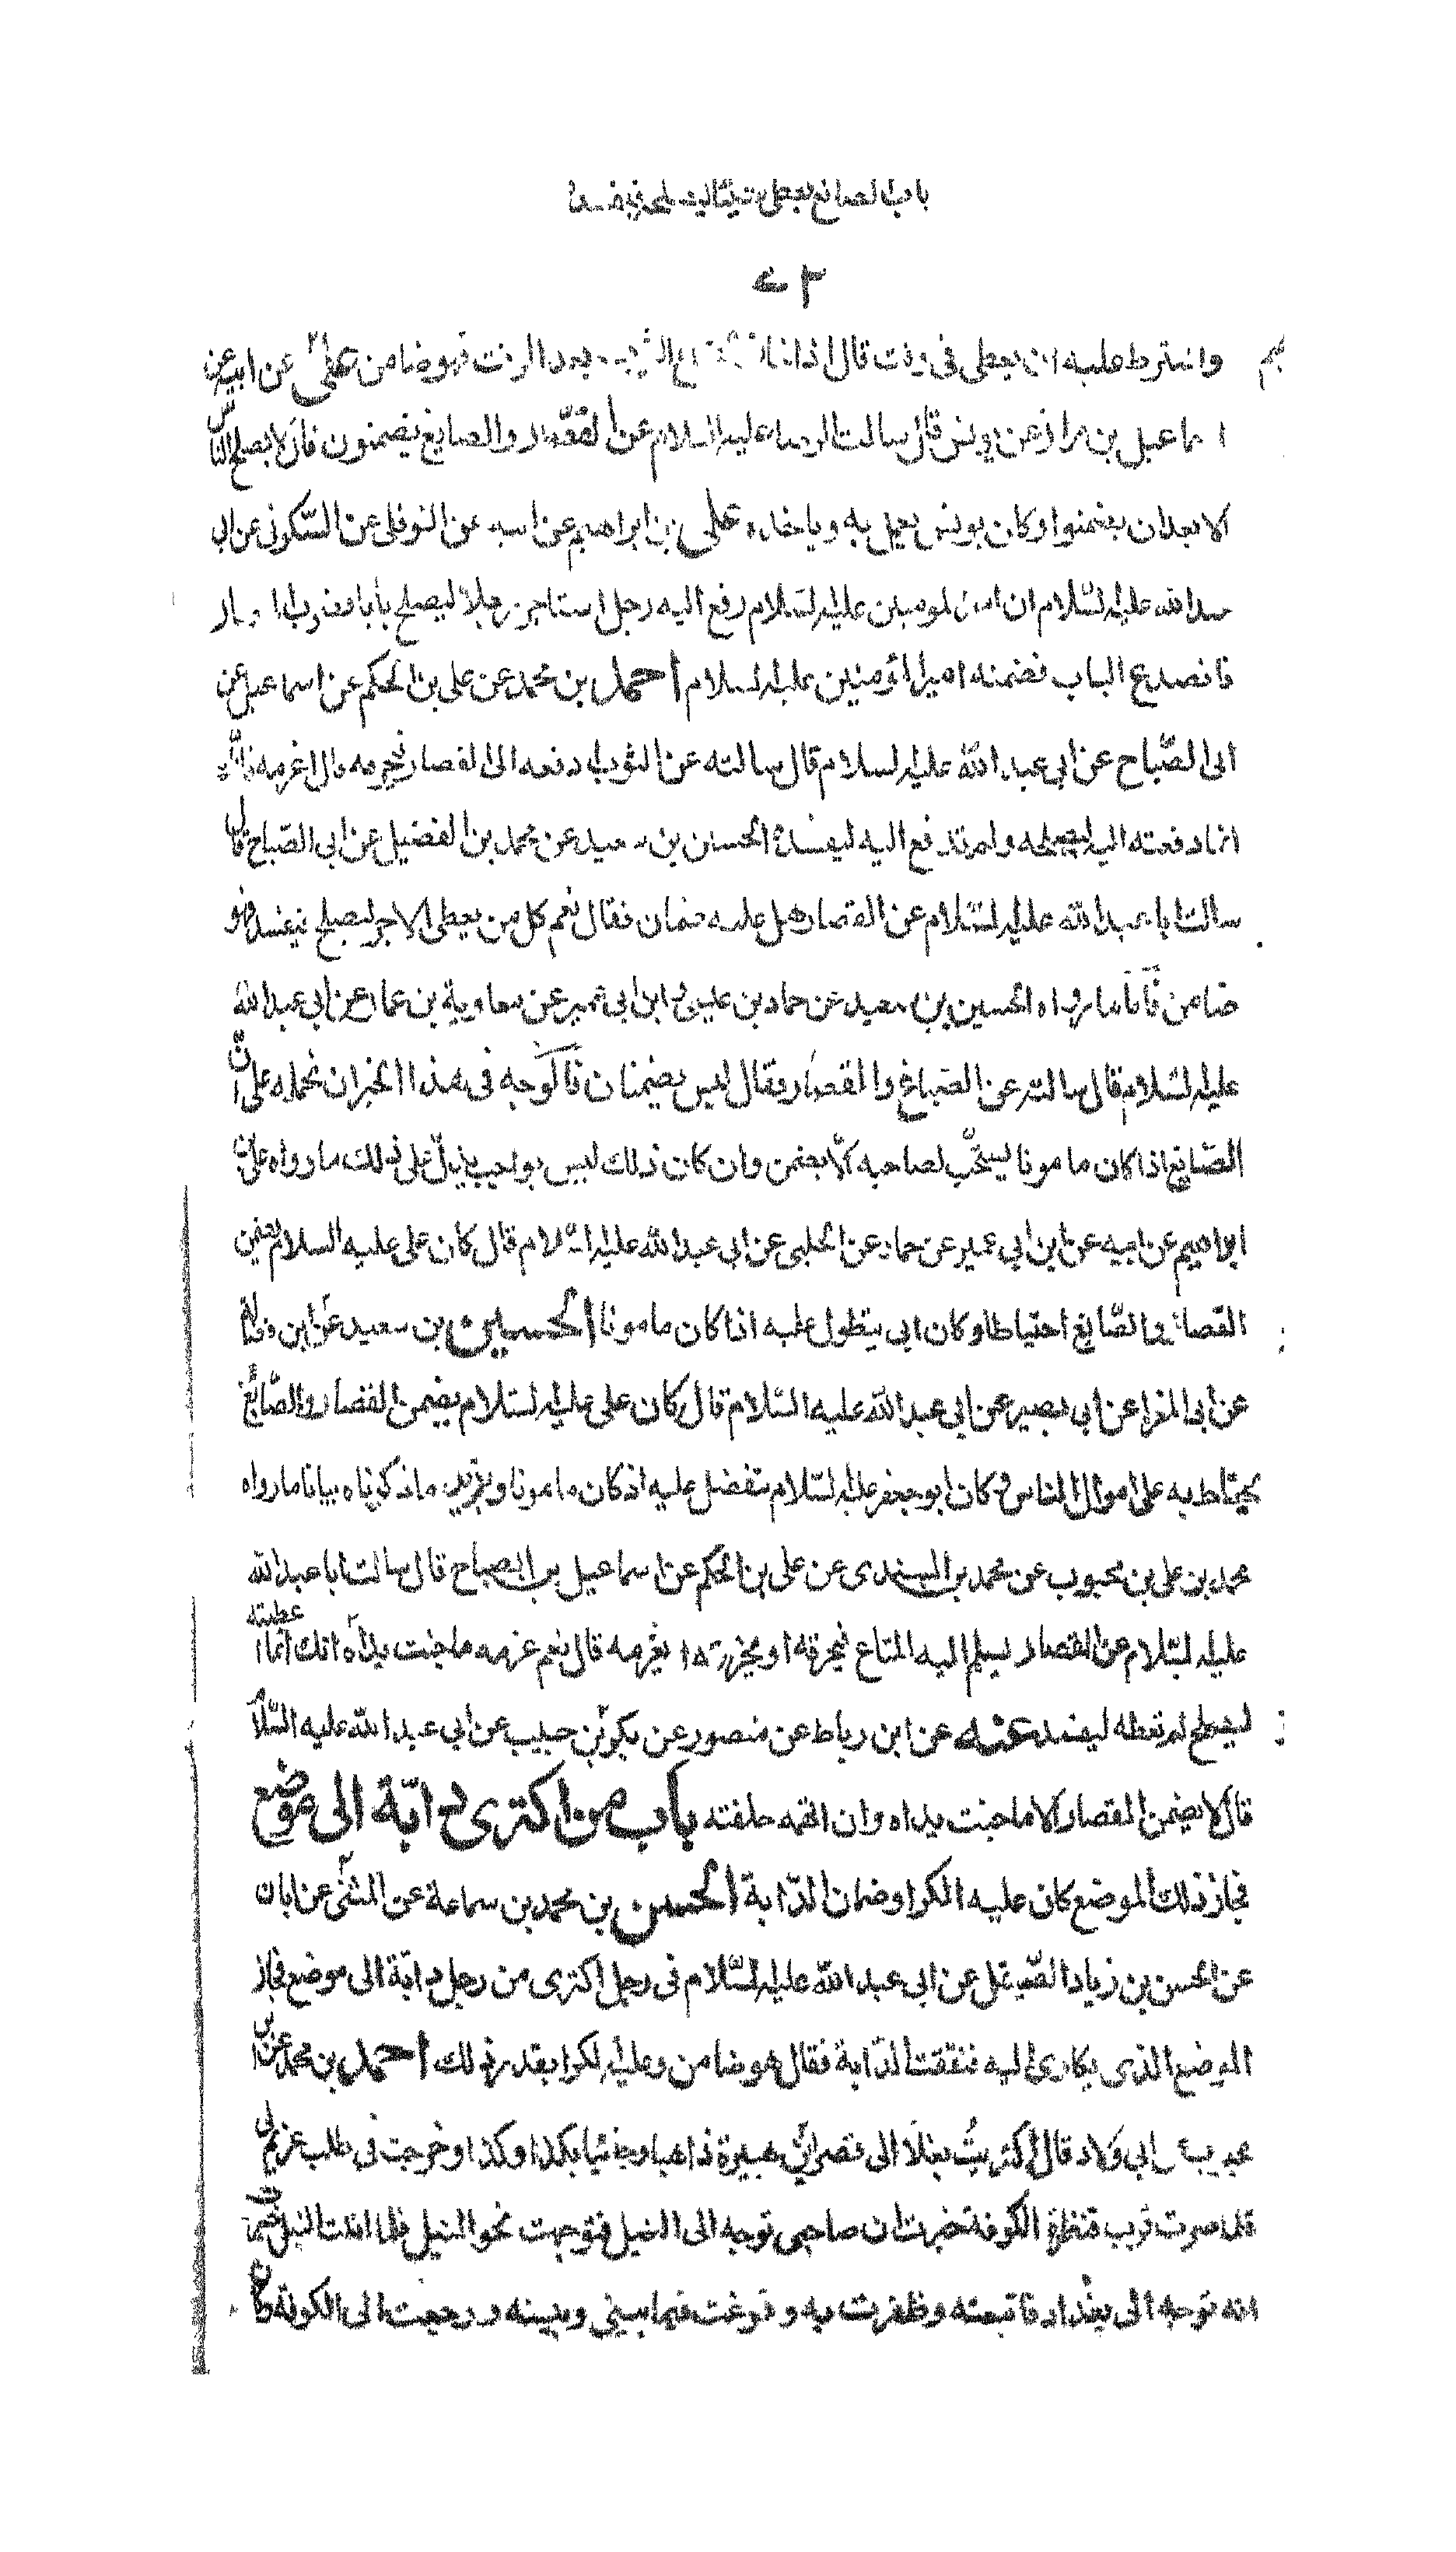 باب الصانع يعطى شيئا ليصلحه فيفسده
واشترط عليه ان يعطى فى وقت قال اذا بعد الوقت فهو ضامن على عن ابيه عن
اسماعيل بن مرار عن يونس قال سالت الرضا عليه السلام عن القصار والصايغ يضمنون قال لا يصلح الناس
الا بعد ان يضمنوا وكان يونس يعمل به وياخذه على بن ابراهيم عن ابيه عن النوفلى عن السكونى عن ابى
عبد الله عليه السلام ان امير المومنين عليه السلام رفع اليه رجل استاجر رجلا ليصلح بابا فضرب المسمار
فانصدع الباب فضمنه امير المؤمنين عليه السلام احمد بن محمد عن على بن الحكم عن اسماعيل عن
ابى الصباح عن ابى عبد الله عليه السلام قال سالته عن الثوب ادفعه الى القصار فيحرقه قال اغرمه فانك
انما دفعته اليه ليصلحه ولم تدفع اليه ليفسده الحسين بن سعيد عن محمد بن الفضيل عن ابى الصباح قال
سالت ابا عبد الله عليه السلام عن القصار هل عليه ضمان فقال نعم كل من يعطى الاجر ليصلح فيفسد فهو
ضامن فاما ما رواه الحسين بن سعيد عن حماد بن عيسى وابن ابى عمير عن معاوية بن عمار عن ابى عبد الله
عليه السلام قال سالته عن الصباغ والقصار فقال ليس يضمنان فالوجه فى هذا الخبر ان نحمله على ان
الصانع اذا كان مامونا يستحب لصاحبه الا يضمن وان كان ذلك ليس بواجب يدل على ذلك ما رواه على بن
ابراهيم عن ابيه عن ابن ابى عمير عن حماد عن الحلبى عن ابى عبد الله عليه السلام قال كان على عليه السلام يضمن
القصار والصايغ احتياطا وكان ابى يتطول عليه اذا كان مامونا الحسين بن سعيد عن ابن فضالة
عن ابى المغرا عن ابى بصير عن ابى عبد الله عليه السلام قال كان على عليه السلام يضمن القصار والصايغ
يحتاط به على اموال الناس وكان ابو جعفر عليه السلام يتفضل عليه اذ كان مامونا ويزيد ما ذكرناه بيانا ما رواه
محمد بن على بن محبوب عن محمد بن السندى عن على بن الحكم عن اسماعيل بن الصباح قال سالت ابا عبد الله
عليه السلام عن القصار يسلم اليه المتاع فيحرقه او يخرقه ا يغرمه قال نعم غرمه ما جنت يداه انك انما اعطيته
ليصلح لم تعطه ليفسد عنه عن ابن رباط عن منصور عن بكر بن حبيب عن ابى عبد الله عليه السلام
قال لا يضمن القصار الا ما جنت يداه وان اتهمته حلفته باب من اكترى دابة الى موضع
فجاز ذلك الموضع كان عليه الكرا وضمان الدابة الحسن بن محمد بن سماعة عن المثنى عن ابان
عن الحسن بن زياد الصيقل عن ابى عبد الله عليه السلام فى رجل اكترى من رجل دابة الى موضع فجاز
الموضع الذى يكارى اليه فنفقت الدابة فقال هو ضامن وعليه الكرا بقدر ذلك احمد بن محمد عن ابن
محبوب عن ابى ولاد قال اكتريت بغلا الى قصر ابن هبيرة ذاهبا وجائيا بكذا وكذا وخرجت فى طلب غريم لى
فلما صرت قرب قنطرة الكوفة خبرت ان صاحبى توجه الى النيل فتوجهت نحو النيل فلما اتيت النيل خبرت
انه توجه الى بغداد فاتبعته وظفرت به وفرغت فيما بينى وبينه ورجعت الى الكوفة وكان